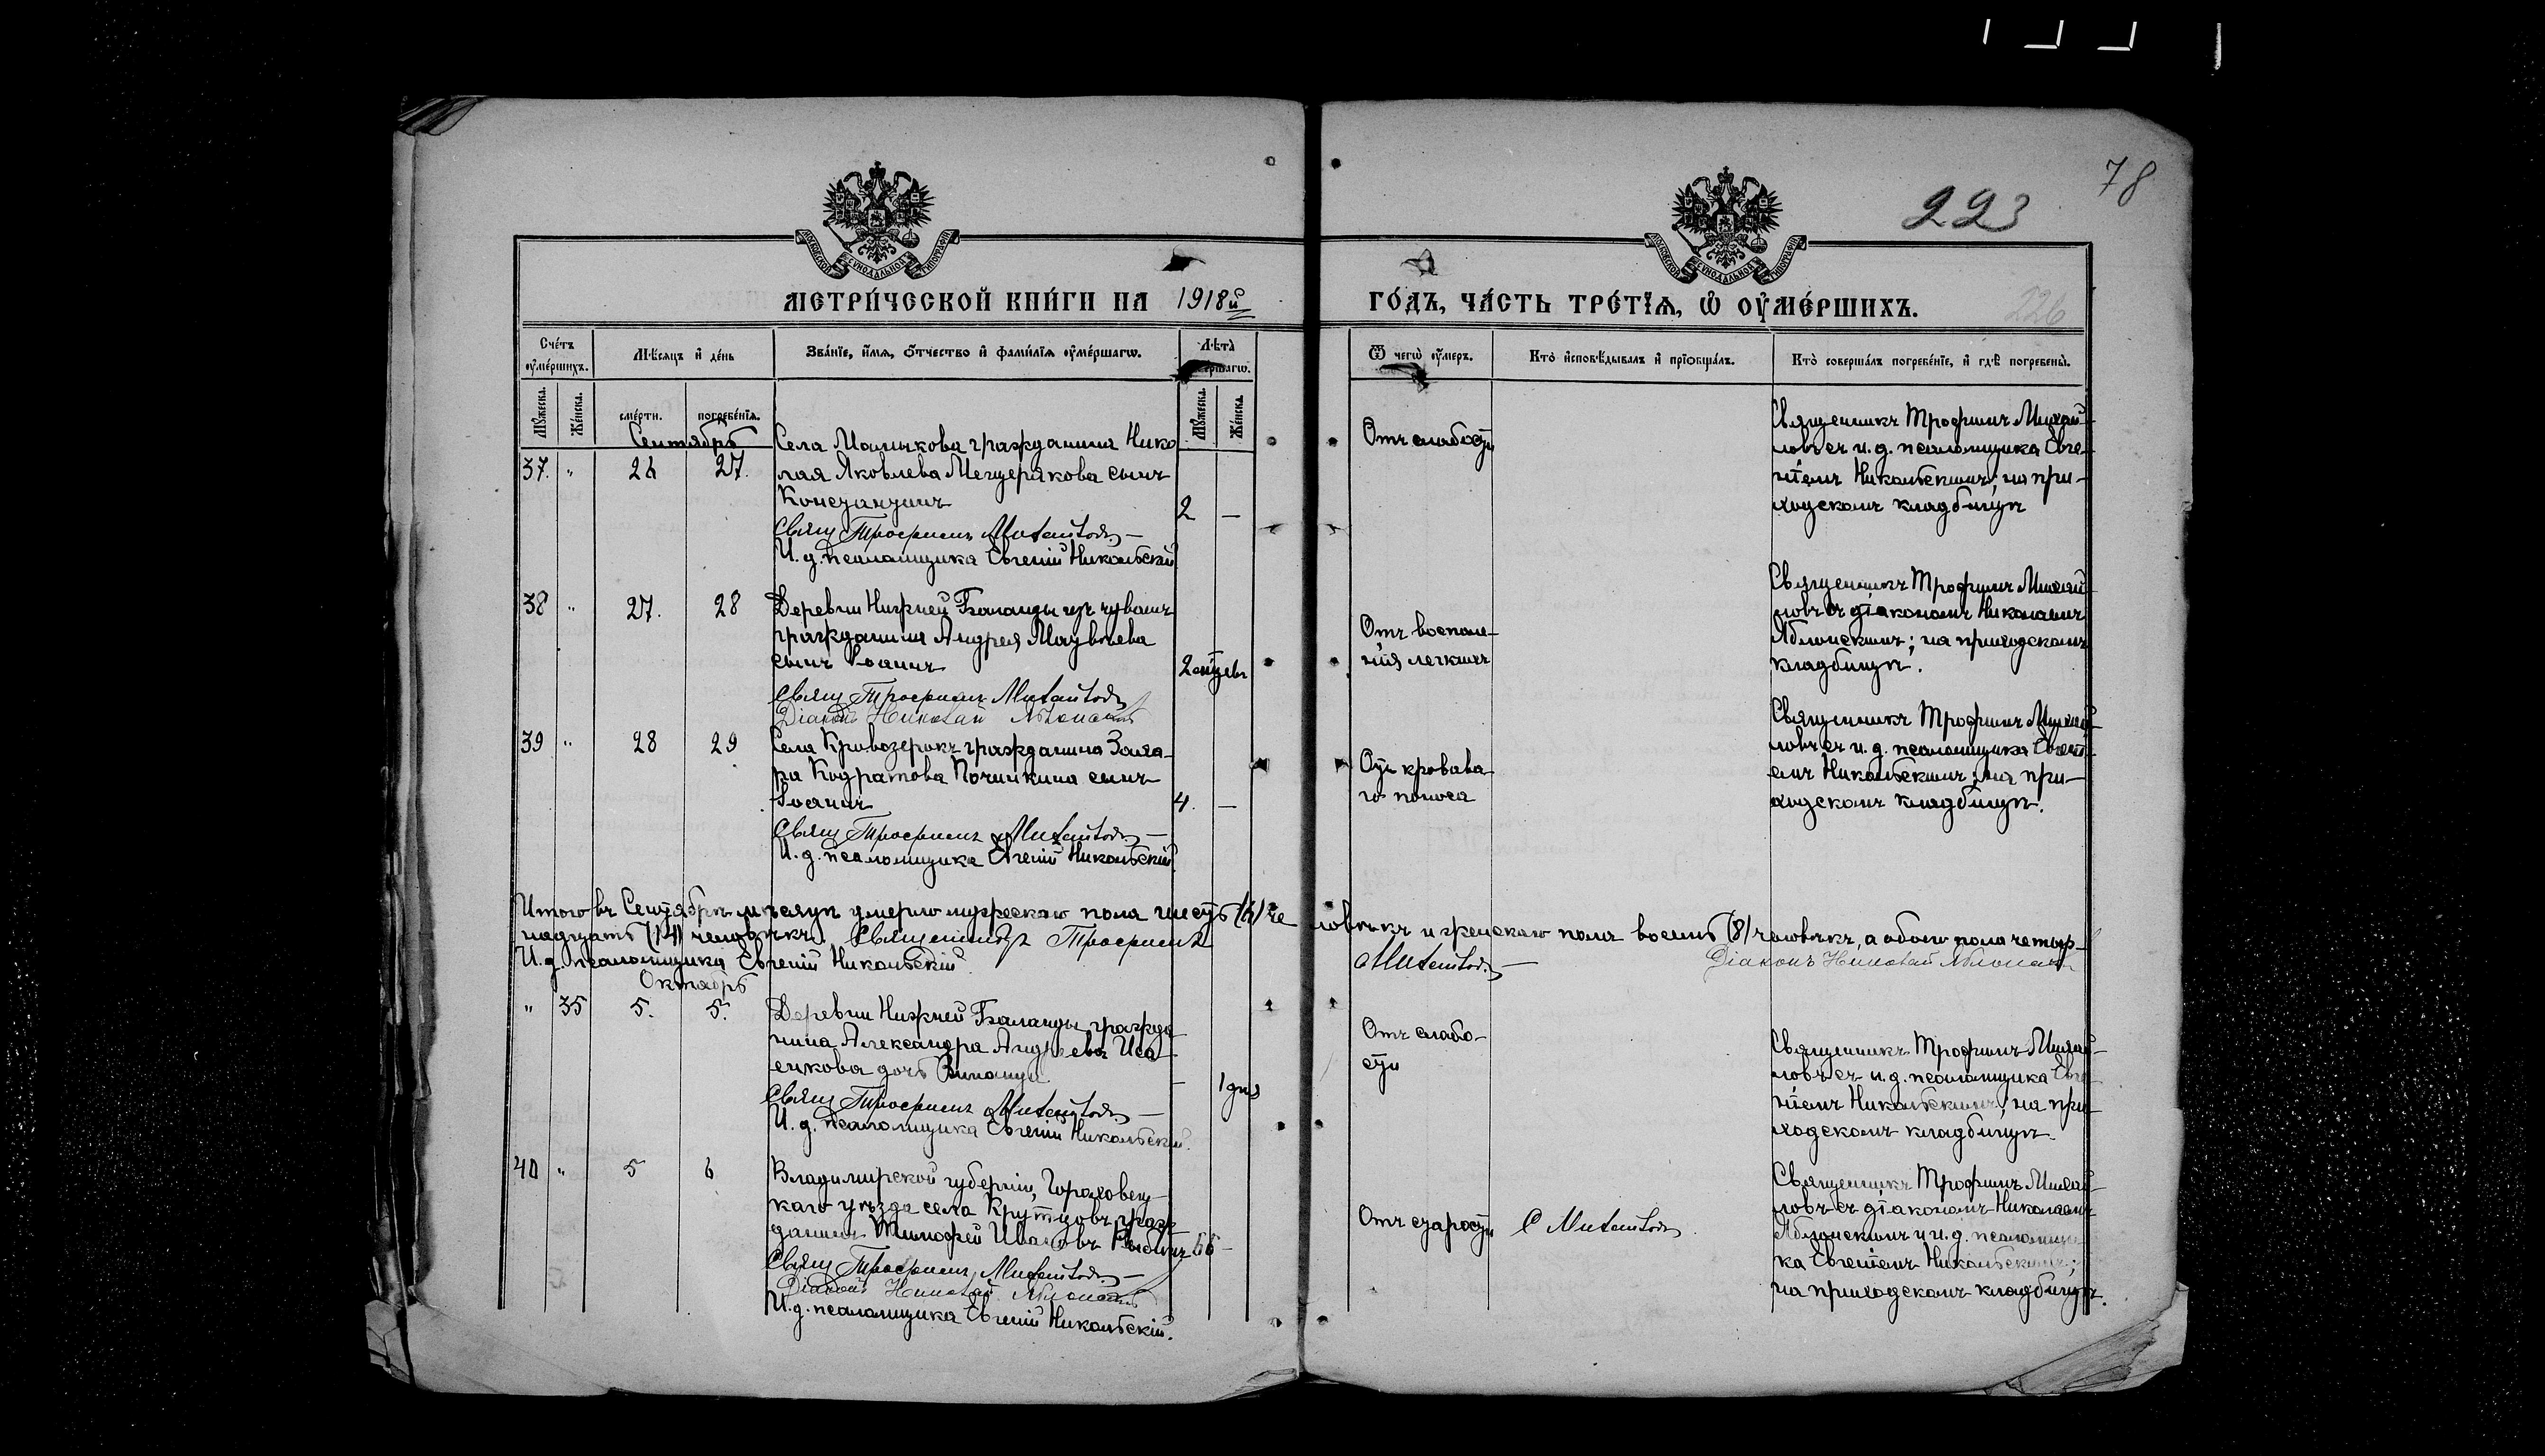 78
223
226
МОСКОВСКОЙ СѴНОДАЛЬНОЙ ТИПОГРАФІИ
МОСКОВСКОЙ СѴНОДАЛЬНОЙ ТИПОГРАФІИ
МЕТРИ́ЧЕСКОЙ КНИ́ГИ НА 1918й
ГО́ДЪ, ЧА́СТЬ ТРЕ́ТІѦ, Ѡ҆ ОУ҆МЕ́РШИХЪ.
Сче́тъ оу҆ме́ршихъ.
Мѣсяцъ и҆ де́нь
Зва́нїе, и҆́мя, ѻ҆́тчество и҆ фами́лїя оу҆ме́ршагѡ.
Лѣта̀
Ѿ чегѡ̀ оу҆́меръ.
Кто̀ и҆сповѣ́дывалъ и҆ прїѡбща́лъ.
Кто̀ соверша́лъ погребе́нїе, и҆ гдѣ̀ погребены̀.
Мꙋ́жеска.
Же́нска.
сме́рти.
погребе́нїя.
Мꙋ́жеска.
Же́нска.
Сентябрь
37. " 26 27.
Села Малинкова гражданина Нико
лая Яковлева Мещерякова сынъ
Константинъ
2 —
Свящ Трофимъ Михайловъ
И. д. псаломщика Евгеній Никольскій
Отъ слабости
Священникъ Трофимъ Михай-
ловъ съ и. д. псаломщика Евге-
ніемъ Никольскимъ; на при-
ходскомъ кладбищѣ
38 " 27. 28
Деревни Нижней Баланды изъ чувашъ
гражданина Андрея Матвѣева
сынъ Іоаннъ
2 мѣсяц
Свящ Трофимъ Михайловъ
Діаконъ Николай Яблонскій
Отъ воспале-
нія легкихъ
Священникъ Трофимъ Михай-
ловъ съ діакономъ Николаемъ
Яблонскимъ; на приходскомъ
кладбищѣ.
39 " 28 29
Села Кривозерокъ гражданина Заха-
ра Кодратова Починкина сынъ
Іоаннъ
4. —
Свящ Трофимъ Михайловъ
И. д. псаломщика Евгеній Никольскій
Отъ кровава-
го поноса
Священникъ Трофимъ Михай-
ловъ съ и. д. псаломщика Евгені-
емъ Никольскимъ; на при-
ходскомъ кладбищѣ.
Итого въ Сентябрѣ мѣсяцѣ умерло мужескаго пола шесть (6) че
ловѣкъ и женскаго пола восемь (8) человѣкъ, а обоего пола четыр-
надцать (14) человѣкъ. Священникъ Трофимъ
Михайловъ
Діаконъ Николай Яблонскій
И. д. псаломщика Евгеній Никольскій
Октябрь
" 35 5. 5.
Деревни Нижней Баланды гражда
нина Александра Андреева Иса-
енкова дочь
— 1 дня
Свящ Трофимъ Михайловъ
И. д. псаломщика Евгеній Никольскій.
Отъ слабо-
сти
Священникъ Трофимъ Михай-
ловъ съ и. д. псаломщика Евге-
ніемъ Никольскимъ; на при-
ходскомъ кладбищѣ.
40 " 5 6
Владимирской губерніи, Гороховец-
каго уѣзда села граж
данинъ Тимофей Ивановъ Рыбинъ 66 —
Свящ Трофимъ Михайловъ
Діаконъ Николай Яблонскій
И. д. псаломщика Евгеній Никольскій.
Отъ старости
С Михайловъ
Священникъ Трофимъ Михай-
ловъ съ діакономъ Николаемъ
Яблонскимъ и и. д. псаломщи-
ка Евгеніемъ Никольскимъ;
на приходскомъ кладбищѣ.